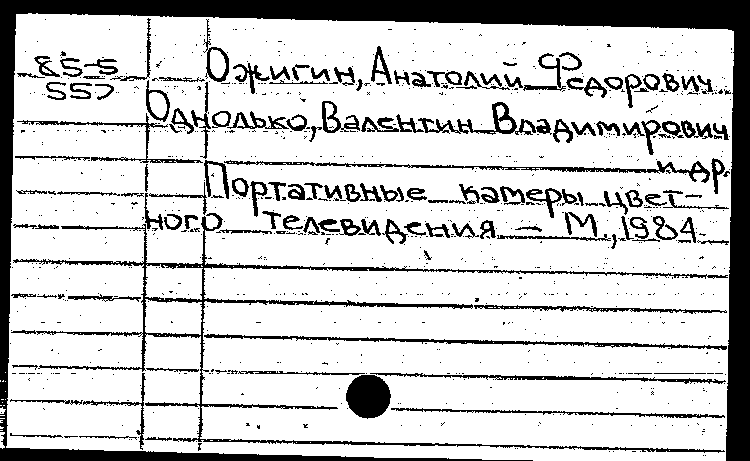 85-5
557
Ожигин, Анатолий Федорович.
Однолько, Валентин Владимирович
и др.
Портативные камеры цвет-
ного телевидения – М., 1984.